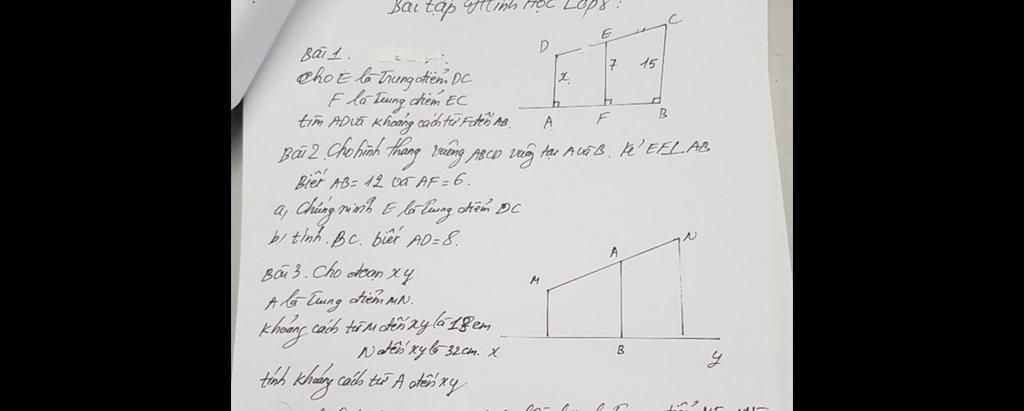 Bài tập Hình Học Lớp 8:
Bài 1.
Cho E là Trung điểm DC
F là Trung điểm EC
tìm AD và khoảng cách từ F đến AB.
D
E
C
x
7
15
A
F
B
Bài 2. Cho hình thang vuông ABCD vuông tại A và B. Kẻ EF⊥AB
Biết AB = 12 và AF = 6.
a, Chứng minh E là Trung điểm DC
b, tính BC. biết AD = 8.
Bài 3. Cho đoạn xy
A là Trung điểm MN.
Khoảng cách từ M đến xy là 18cm
N đến xy là 32cm.
tính khoảng cách từ A đến xy
M
A
N
x
B
y